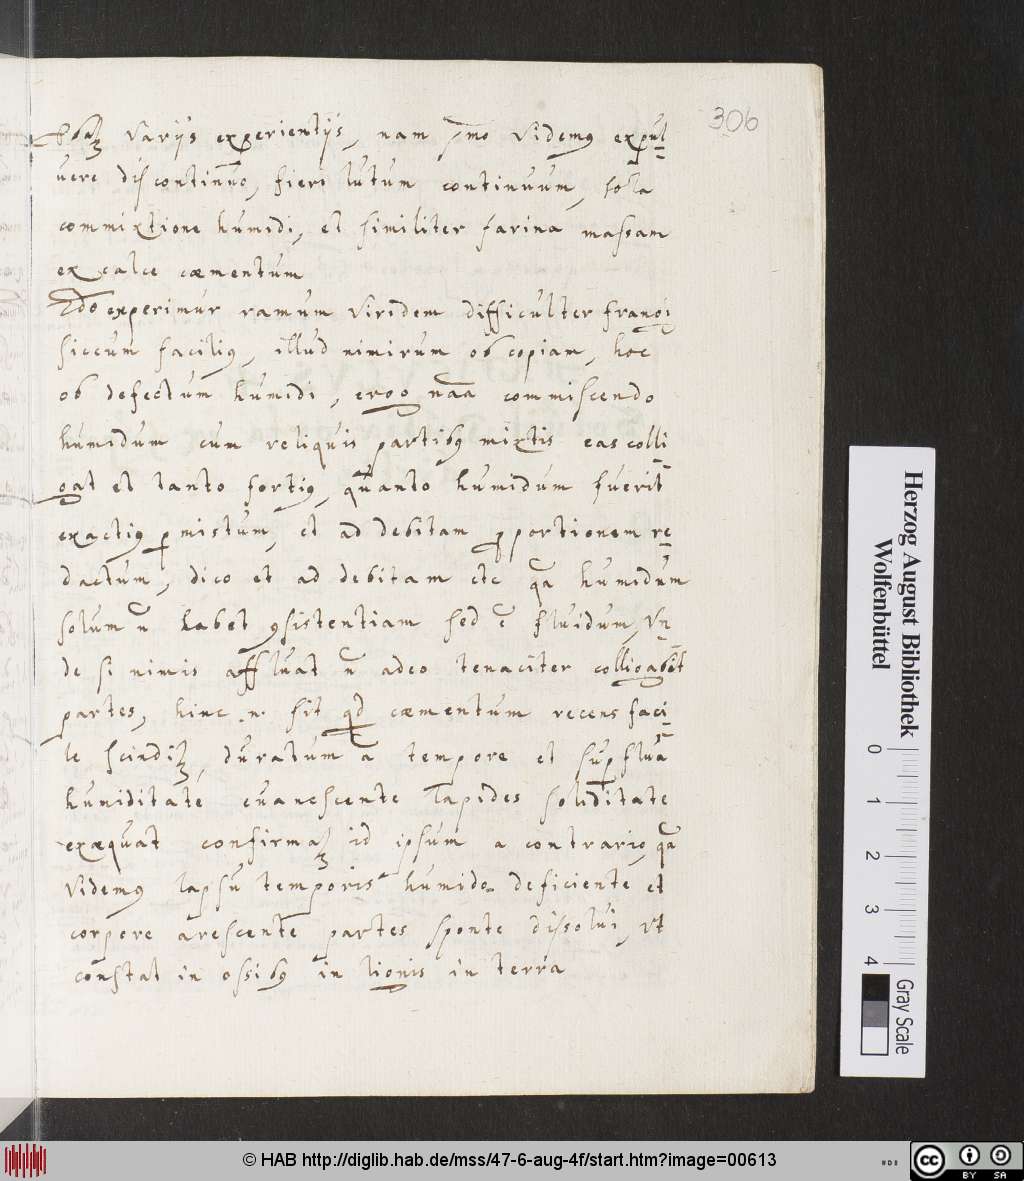 306
varijs experientijs, nam pmo videmus expul=
vere discontinuo, fieri lutum continuum, sola
commixtione humidi, et similiter farina massam
ex calce cæmentum
2do experimur ramum viridem difficulter frangi
siccum facilius, illud nimirum ob copiam, hoc
ob defectum humidi, ergo nãa commiscendo
humidum cum reliquis partibus mixtis eas colli=
gat et tanto fortius, quanto humidum fuerit
exactius permistum, et ad debitam proportionem re=
dactum, dico et ad debitam etc qa humidum
solum ñ habet consistentiam sed ẽ fluidum, Vn=
de si nimis affluat ñ adeo tenaciter colligabit
partes, hinc .n. fit qd cæmentum recens faci=
le scindit, duratum a tempore et superflua
humiditate euanescente lapides soliditate
exæquat confirmat id ipsum a contrario, qa
Videmus lapsu temporis humido deficiente et
corpore arescente partes sponte dissolui, Vt
constat in ossibus in lignis in terra
Herzog August Bibliothek
Wolfenbüttel
0 1 2 3 4
Gray Scale
© HAB http://diglib.hab.de/mss/47-6-aug-4f/start.htm?image=00613
cc BY SA